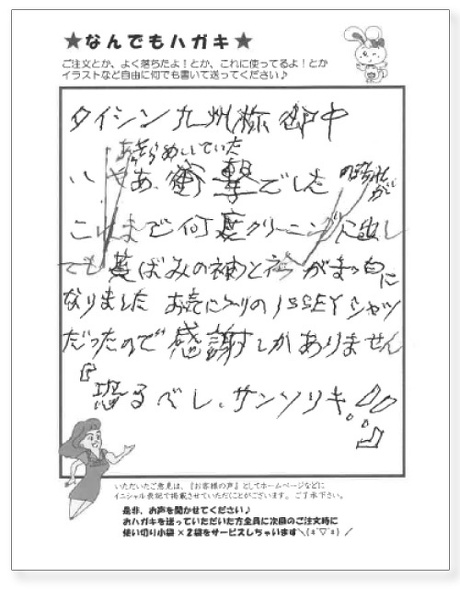 ★なんでもハガキ★
ご注文とか、よく落ちたよ!とか、これに使ってるよ!とか
イラストなど自由に何でも書いて送ってください♪
タイシン九州(株)御中
あきらめいていた
いやあ、衝撃でした
これまで何度クリーニングに出し
ても黄ばみの袖と衿がまっ白に
なりました お気に入りのISSEYシャツ
だったので感謝しかありません
『恐るべし、サンソリキ。』
いただいたご意見は、『お客様の声』としてホームページなどに
イニシャル表記で掲載させていただくことがございます。ご了承下さい。
是非、お声を聞かせてください♪
おハガキを送っていただいた方全員に次回のご注文時に
使い切り小袋×2袋をサービスしちゃいます＼(*ˊ▽ˋ*)／